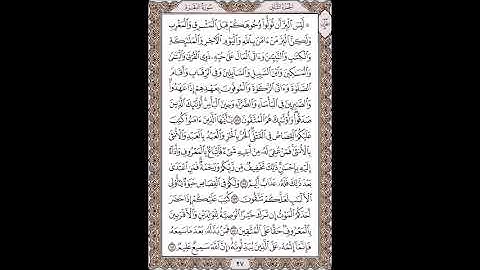 الجزء الثاني سورة البقرة
۞ لَّيْسَ ٱلْبِرَّ أَن تُوَلُّوا۟ وُجُوهَكُمْ قِبَلَ ٱلْمَشْرِقِ وَٱلْمَغْرِبِ
وَلَٰكِنَّ ٱلْبِرَّ مَنْ ءَامَنَ بِٱللَّهِ وَٱلْيَوْمِ ٱلْءَاخِرِ وَٱلْمَلَٰٓئِكَةِ
وَٱلْكِتَٰبِ وَٱلنَّبِيِّۦنَ وَءَاتَى ٱلْمَالَ عَلَىٰ حُبِّهِۦ ذَوِى ٱلْقُرْبَىٰ وَٱلْيَتَٰمَىٰ
وَٱلْمَسَٰكِينَ وَٱبْنَ ٱلسَّبِيلِ وَٱلسَّآئِلِينَ وَفِى ٱلرِّقَابِ وَأَقَامَ
ٱلصَّلَوٰةَ وَءَاتَى ٱلزَّكَوٰةَ وَٱلْمُوفُونَ بِعَهْدِهِمْ إِذَا عَٰهَدُوا۟
وَٱلصَّٰبِرِينَ فِى ٱلْبَأْسَآءِ وَٱلضَّرَّآءِ وَحِينَ ٱلْبَأْسِ أُو۟لَٰٓئِكَ ٱلَّذِينَ
صَدَقُوا۟ وَأُو۟لَٰٓئِكَ هُمُ ٱلْمُتَّقُونَ ١٧٧ يَٰٓأَيُّهَا ٱلَّذِينَ ءَامَنُوا۟ كُتِبَ
عَلَيْكُمُ ٱلْقِصَاصُ فِى ٱلْقَتْلَى ٱلْحُرُّ بِٱلْحُرِّ وَٱلْعَبْدُ بِٱلْعَبْدِ وَٱلْأُنثَىٰ
بِٱلْأُنثَىٰ فَمَنْ عُفِىَ لَهُۥ مِنْ أَخِيهِ شَىْءٌ فَٱتِّبَاعٌۢ بِٱلْمَعْرُوفِ وَأَدَآءٌ
إِلَيْهِ بِإِحْسَٰنٍ ذَٰلِكَ تَخْفِيفٌ مِّن رَّبِّكُمْ وَرَحْمَةٌ فَمَنِ ٱعْتَدَىٰ
بَعْدَ ذَٰلِكَ فَلَهُۥ عَذَابٌ أَلِيمٌ ١٧٨ وَلَكُمْ فِى ٱلْقِصَاصِ حَيَوٰةٌ يَٰٓأُو۟لِى
ٱلْأَلْبَٰبِ لَعَلَّكُمْ تَتَّقُونَ ١٧٩ كُتِبَ عَلَيْكُمْ إِذَا حَضَرَ
أَحَدَكُمُ ٱلْمَوْتُ إِن تَرَكَ خَيْرًا ٱلْوَصِيَّةُ لِلْوَٰلِدَيْنِ وَٱلْأَقْرَبِينَ
بِٱلْمَعْرُوفِ حَقًّا عَلَى ٱلْمُتَّقِينَ ١٨٠ فَمَنۢ بَدَّلَهُۥ بَعْدَ مَا سَمِعَهُۥ
فَإِنَّمَآ إِثْمُهُۥ عَلَى ٱلَّذِينَ يُبَدِّلُونَهُۥٓ إِنَّ ٱللَّهَ سَمِيعٌ عَلِيمٌ ١٨١
٢٧